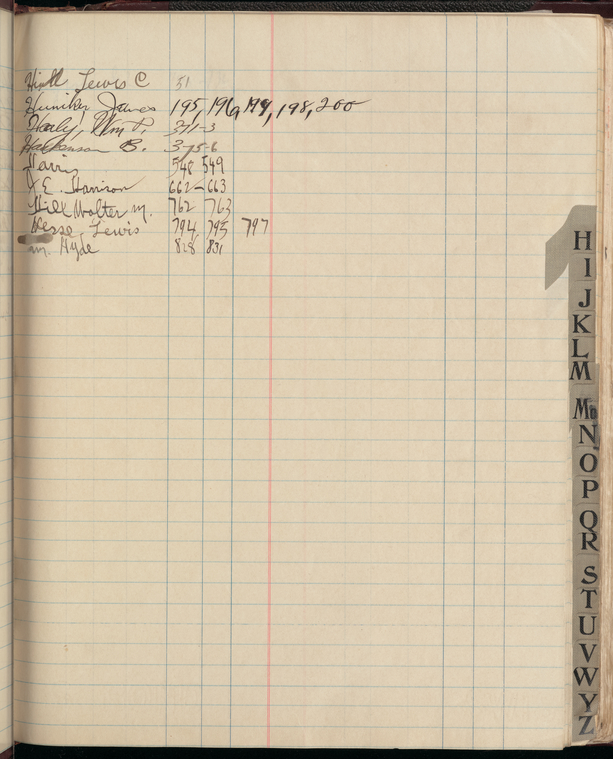 Lewis C 51
James 195, 196, 197, 198, 200
Healy, Wm P. 371-3
B. 375-6
Harris 548 549
J. E. Harrison 662-663
Hill Walter M. 762 763
Hesse Lewis 794, 795 797
M. Hyde 828 831
H
I
J
K
L
M
Mc
N
O
P
Q
R
S
T
U
V
W
Y
Z